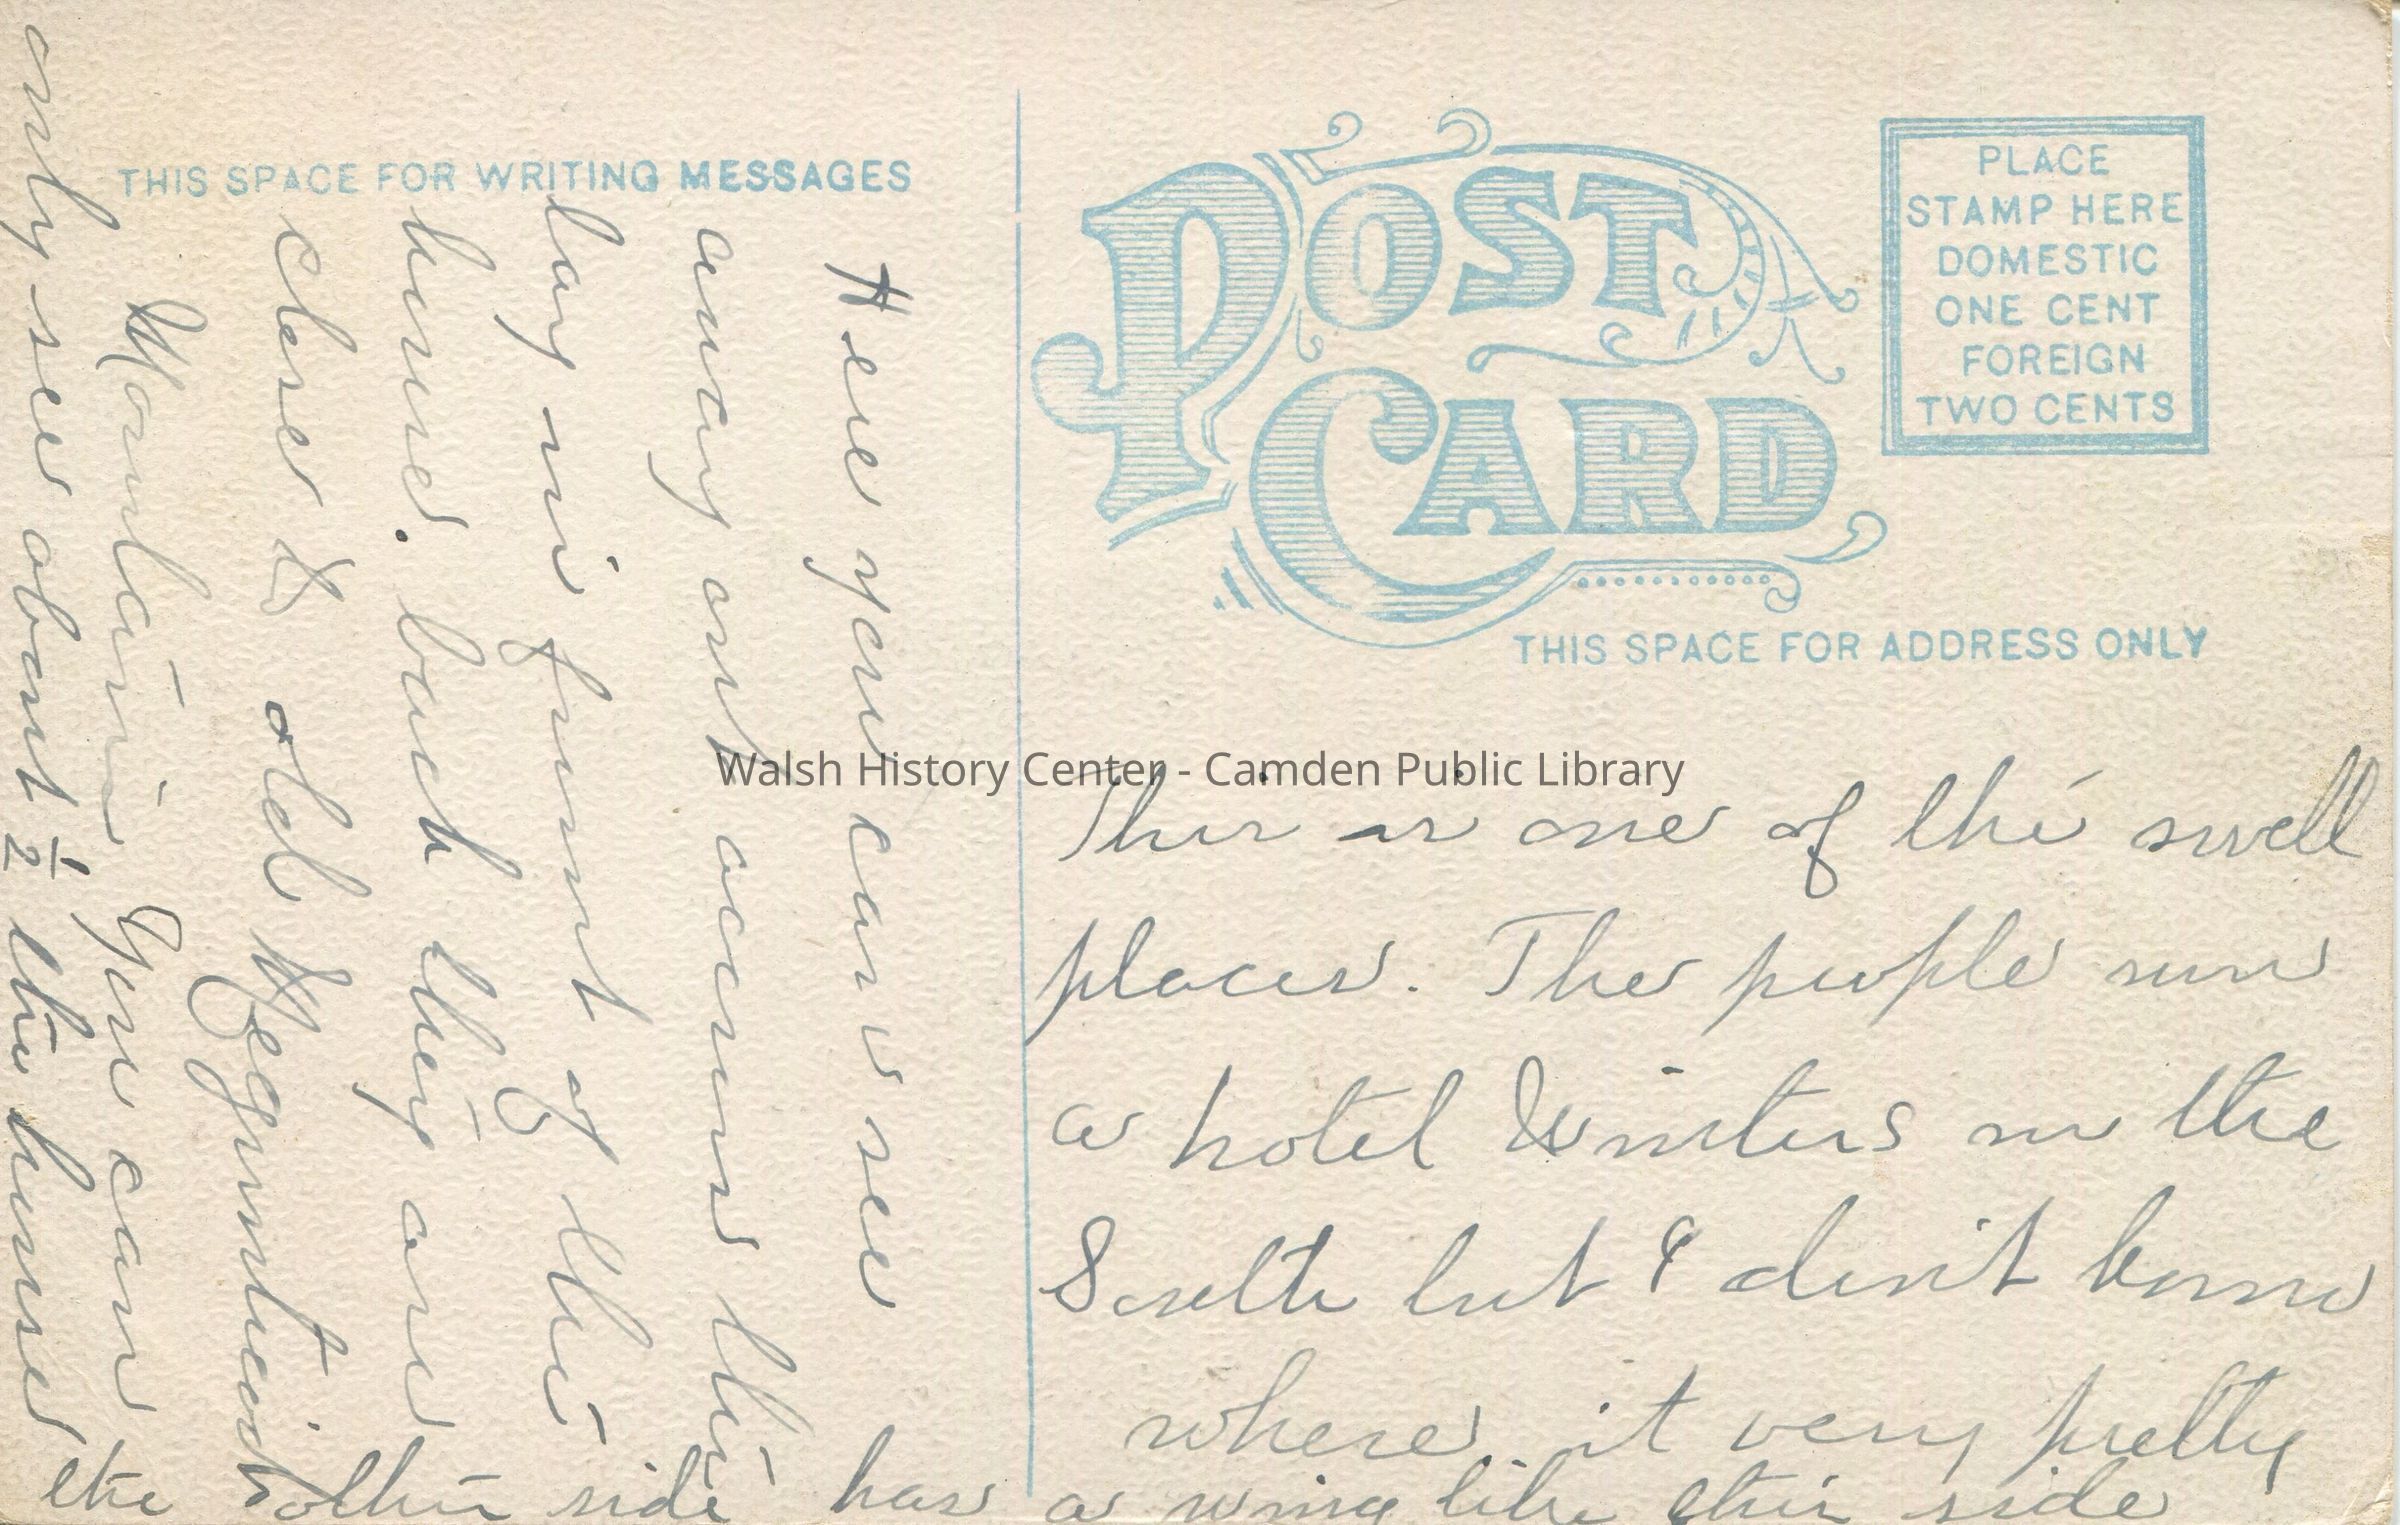 THIS SPACE FOR WRITING MESSAGES
POST CARD
PLACE
STAMP HERE
DOMESTIC
ONE CENT
FOREIGN
TWO CENTS
THIS SPACE FOR ADDRESS ONLY
Walsh History Center - Camden Public Library
This is one of the swell
places. The people run
a hotel Winters in the
South but I don't know
where. it very pretty
Here you can see
away out across the
bay in front of the
house. back they are
close to old
Mountain You can
only see about 1/2 the house
the other side has a wing like this side